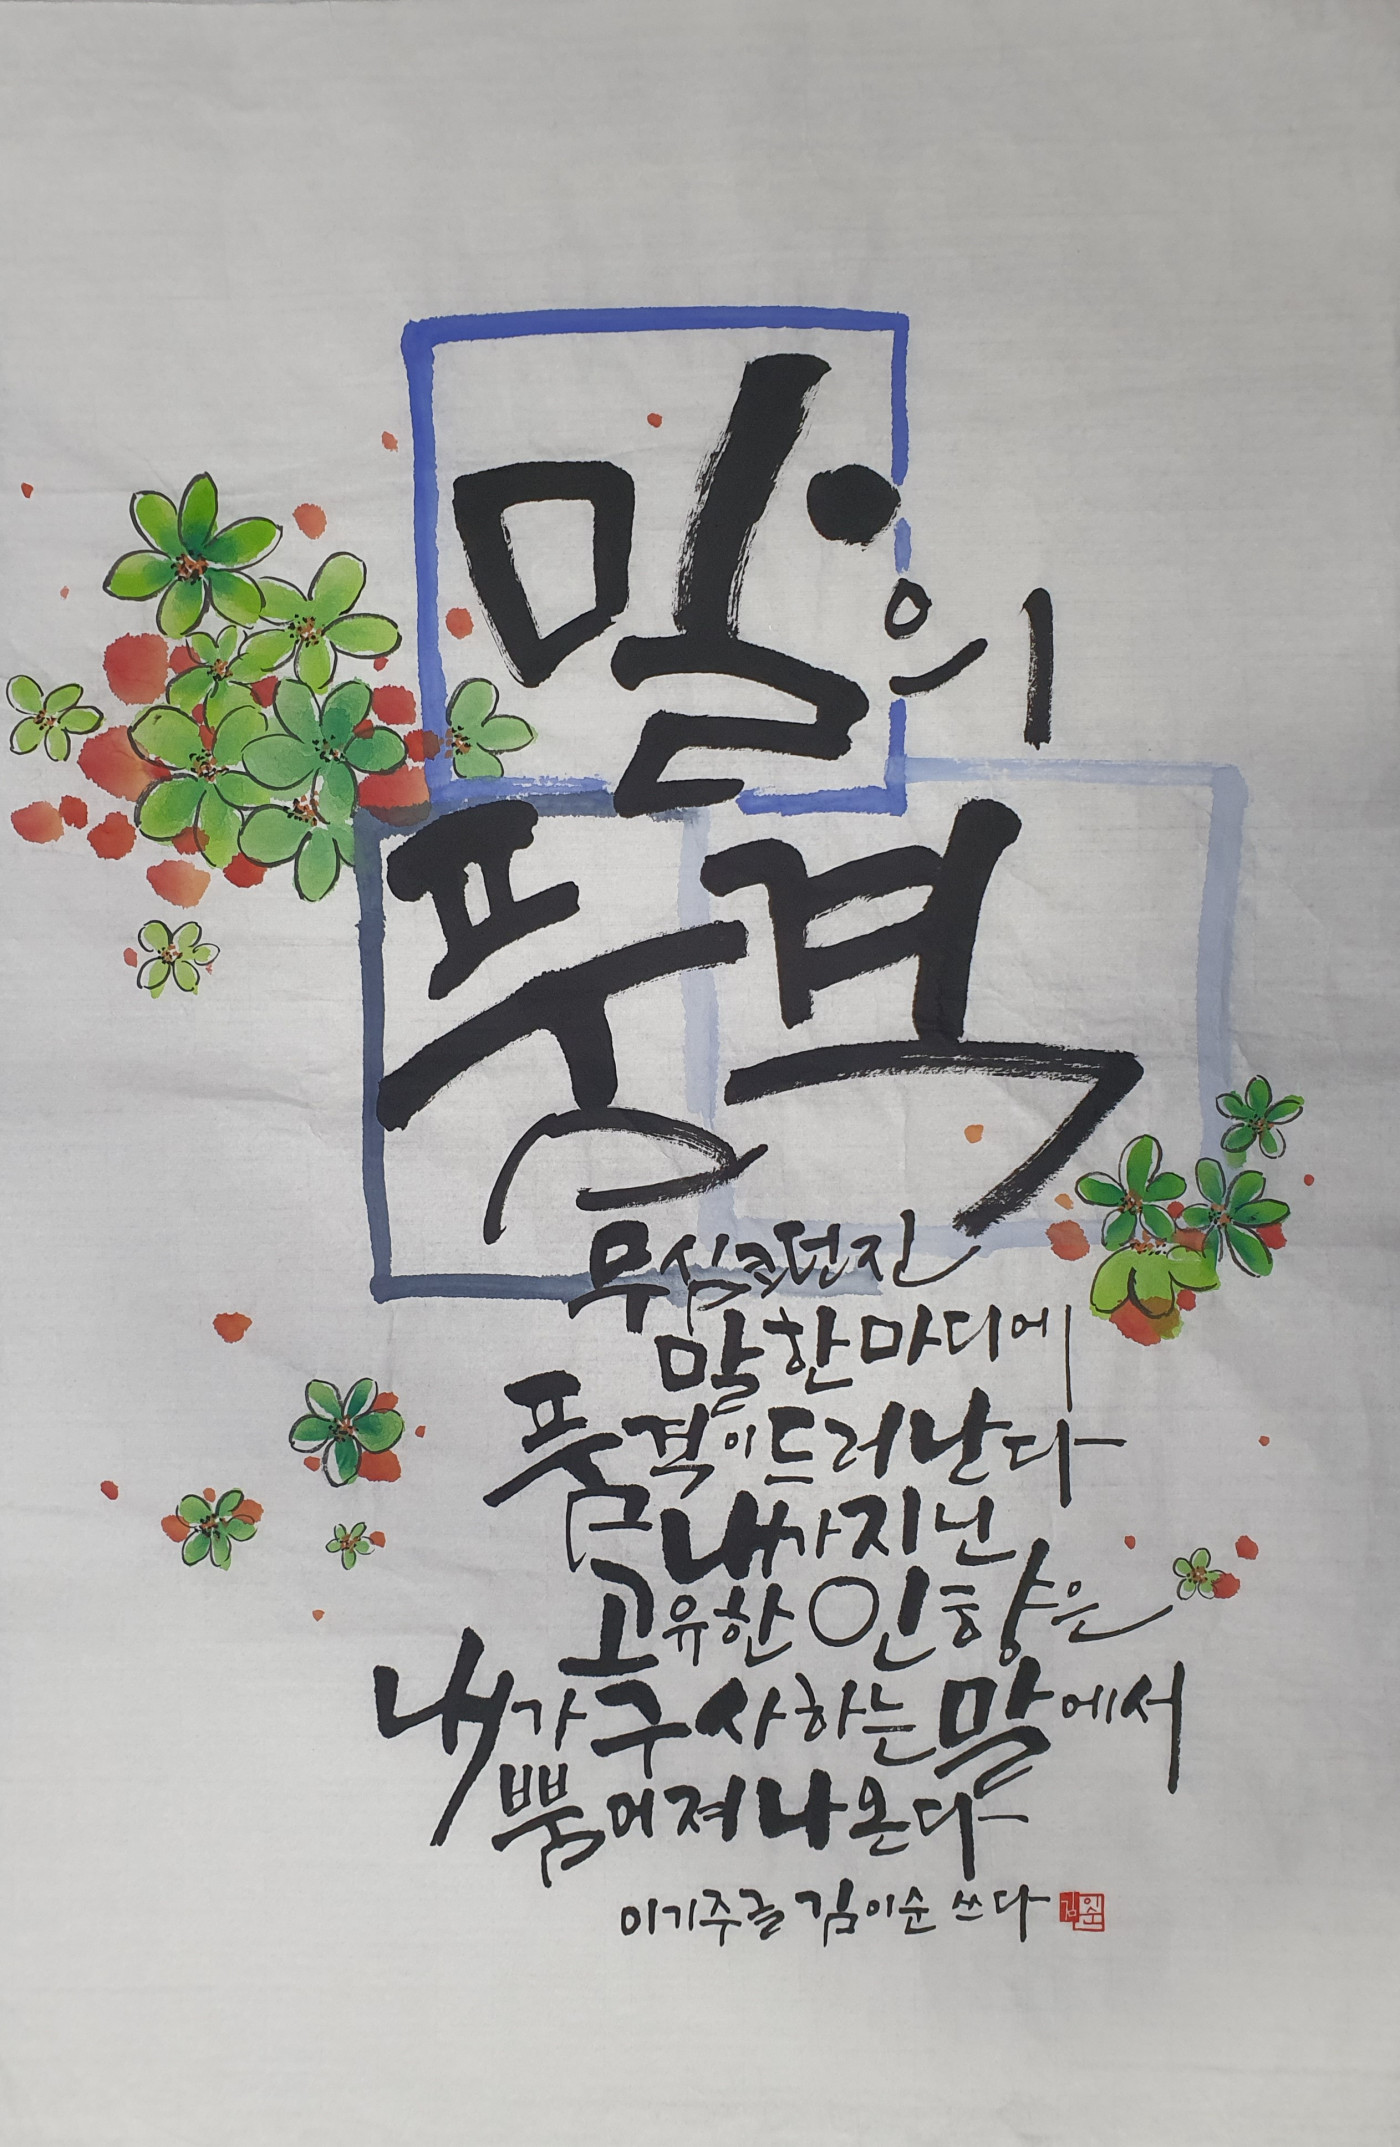 말의
품격
무심코 던진
말 한마디에
품격이 드러난다
내가 지닌
고유한 인향은
내가 구사하는 말에서
뿜어져 나온다
이기주 글 김이순 쓰다